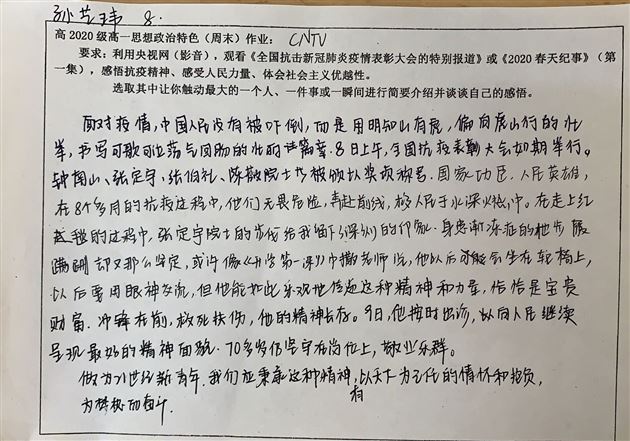 孙艺玮 8.
高 2020 级高一思想政治特色（周末）作业： CNTV
要求：利用央视网（影音），观看《全国抗击新冠肺炎疫情表彰大会的特别报道》或《2020 春天纪事》（第
一集），感悟抗疫精神、感受人民力量、体会社会主义优越性。
选取其中让你触动最大的一个人、一件事或一瞬间进行简要介绍并谈谈自己的感悟。
面对疫情，中国人民没有被吓倒，而是用明知山有虎，偏向虎山行的壮
举，书写可歌可泣荡气回肠的壮丽诗篇章。8日上午，全国抗疫表彰大会如期举行。
钟南山、张定宇、张伯礼、陈薇院士皆被颁以奖项称号。国家功臣，人民英雄，
在8个多月的抗疫过程中，他们无畏危险，青赴前线，救人民于水深火热中。在走上红
毯的过程中，张定宇院士的步伐给我留下深刻的印象。身患渐冻症的他步履
蹒跚却又那么坚定，或许像《开学第一课》中撒老师说，他以后可能会坐在轮椅上，
以后要用眼神交流，但他能如此乐观地传递这种精神和力量，恰恰是宝贵
财富。冲锋在前，救死扶伤，他的精神长存。9日，他按时出诊，以向人民继续
呈现最好的精神面貌。70多岁仍坚守在岗位上，敬业乐群。
做为21世纪新青年，我们应秉承这种精神，有以天下为己任的情怀和抱负，
为梦想而奋斗